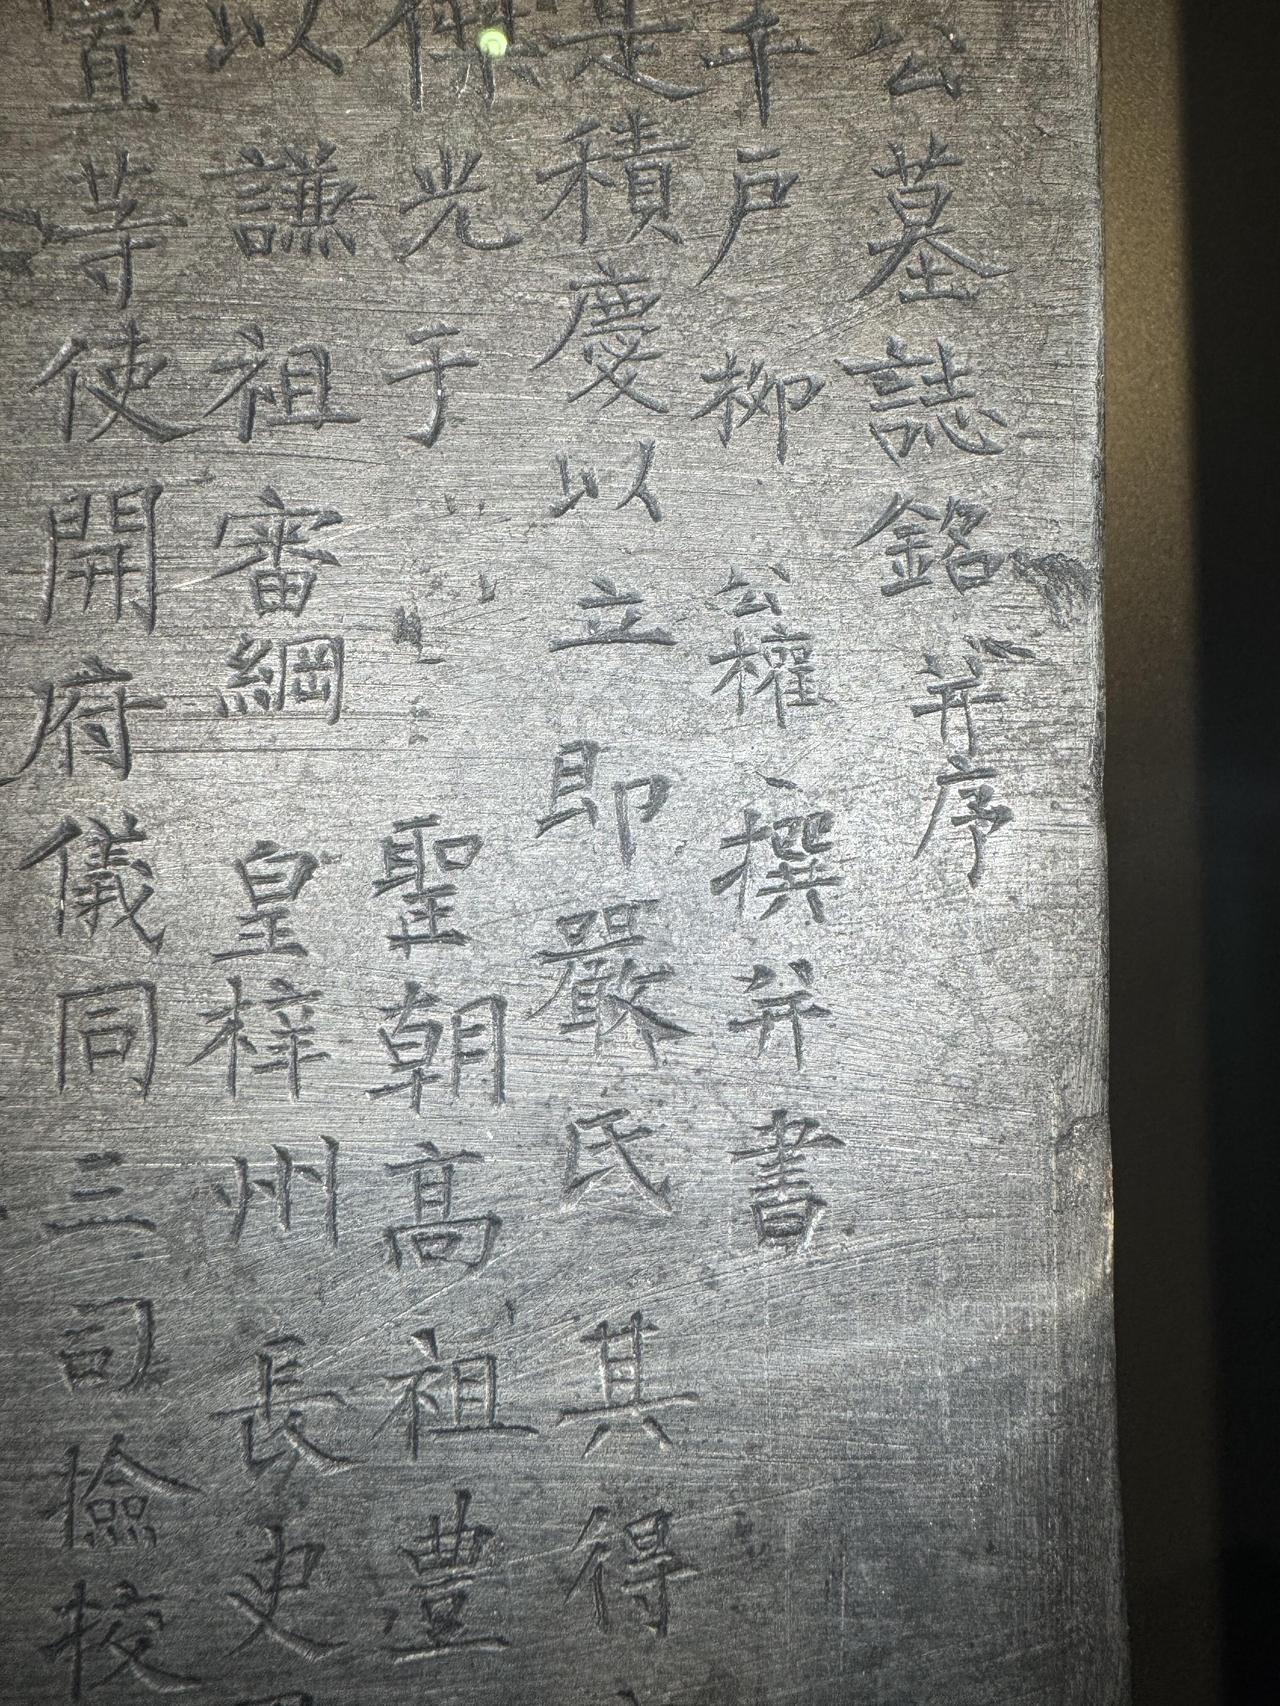 公墓誌銘并序
千戶柳公權撰并書
是積慶以立即嚴民其得
光于聖朝高祖豊
以謙祖審綱皇梓州長史
置等使開府儀同三司撿挍